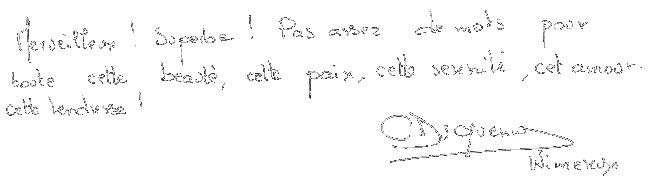 Merveilleux ! Superbe ! Pas assez de mots pour
toute cette beauté, cette paix, cette sérénité, cet amour.
cette tendresse !
Wimereux